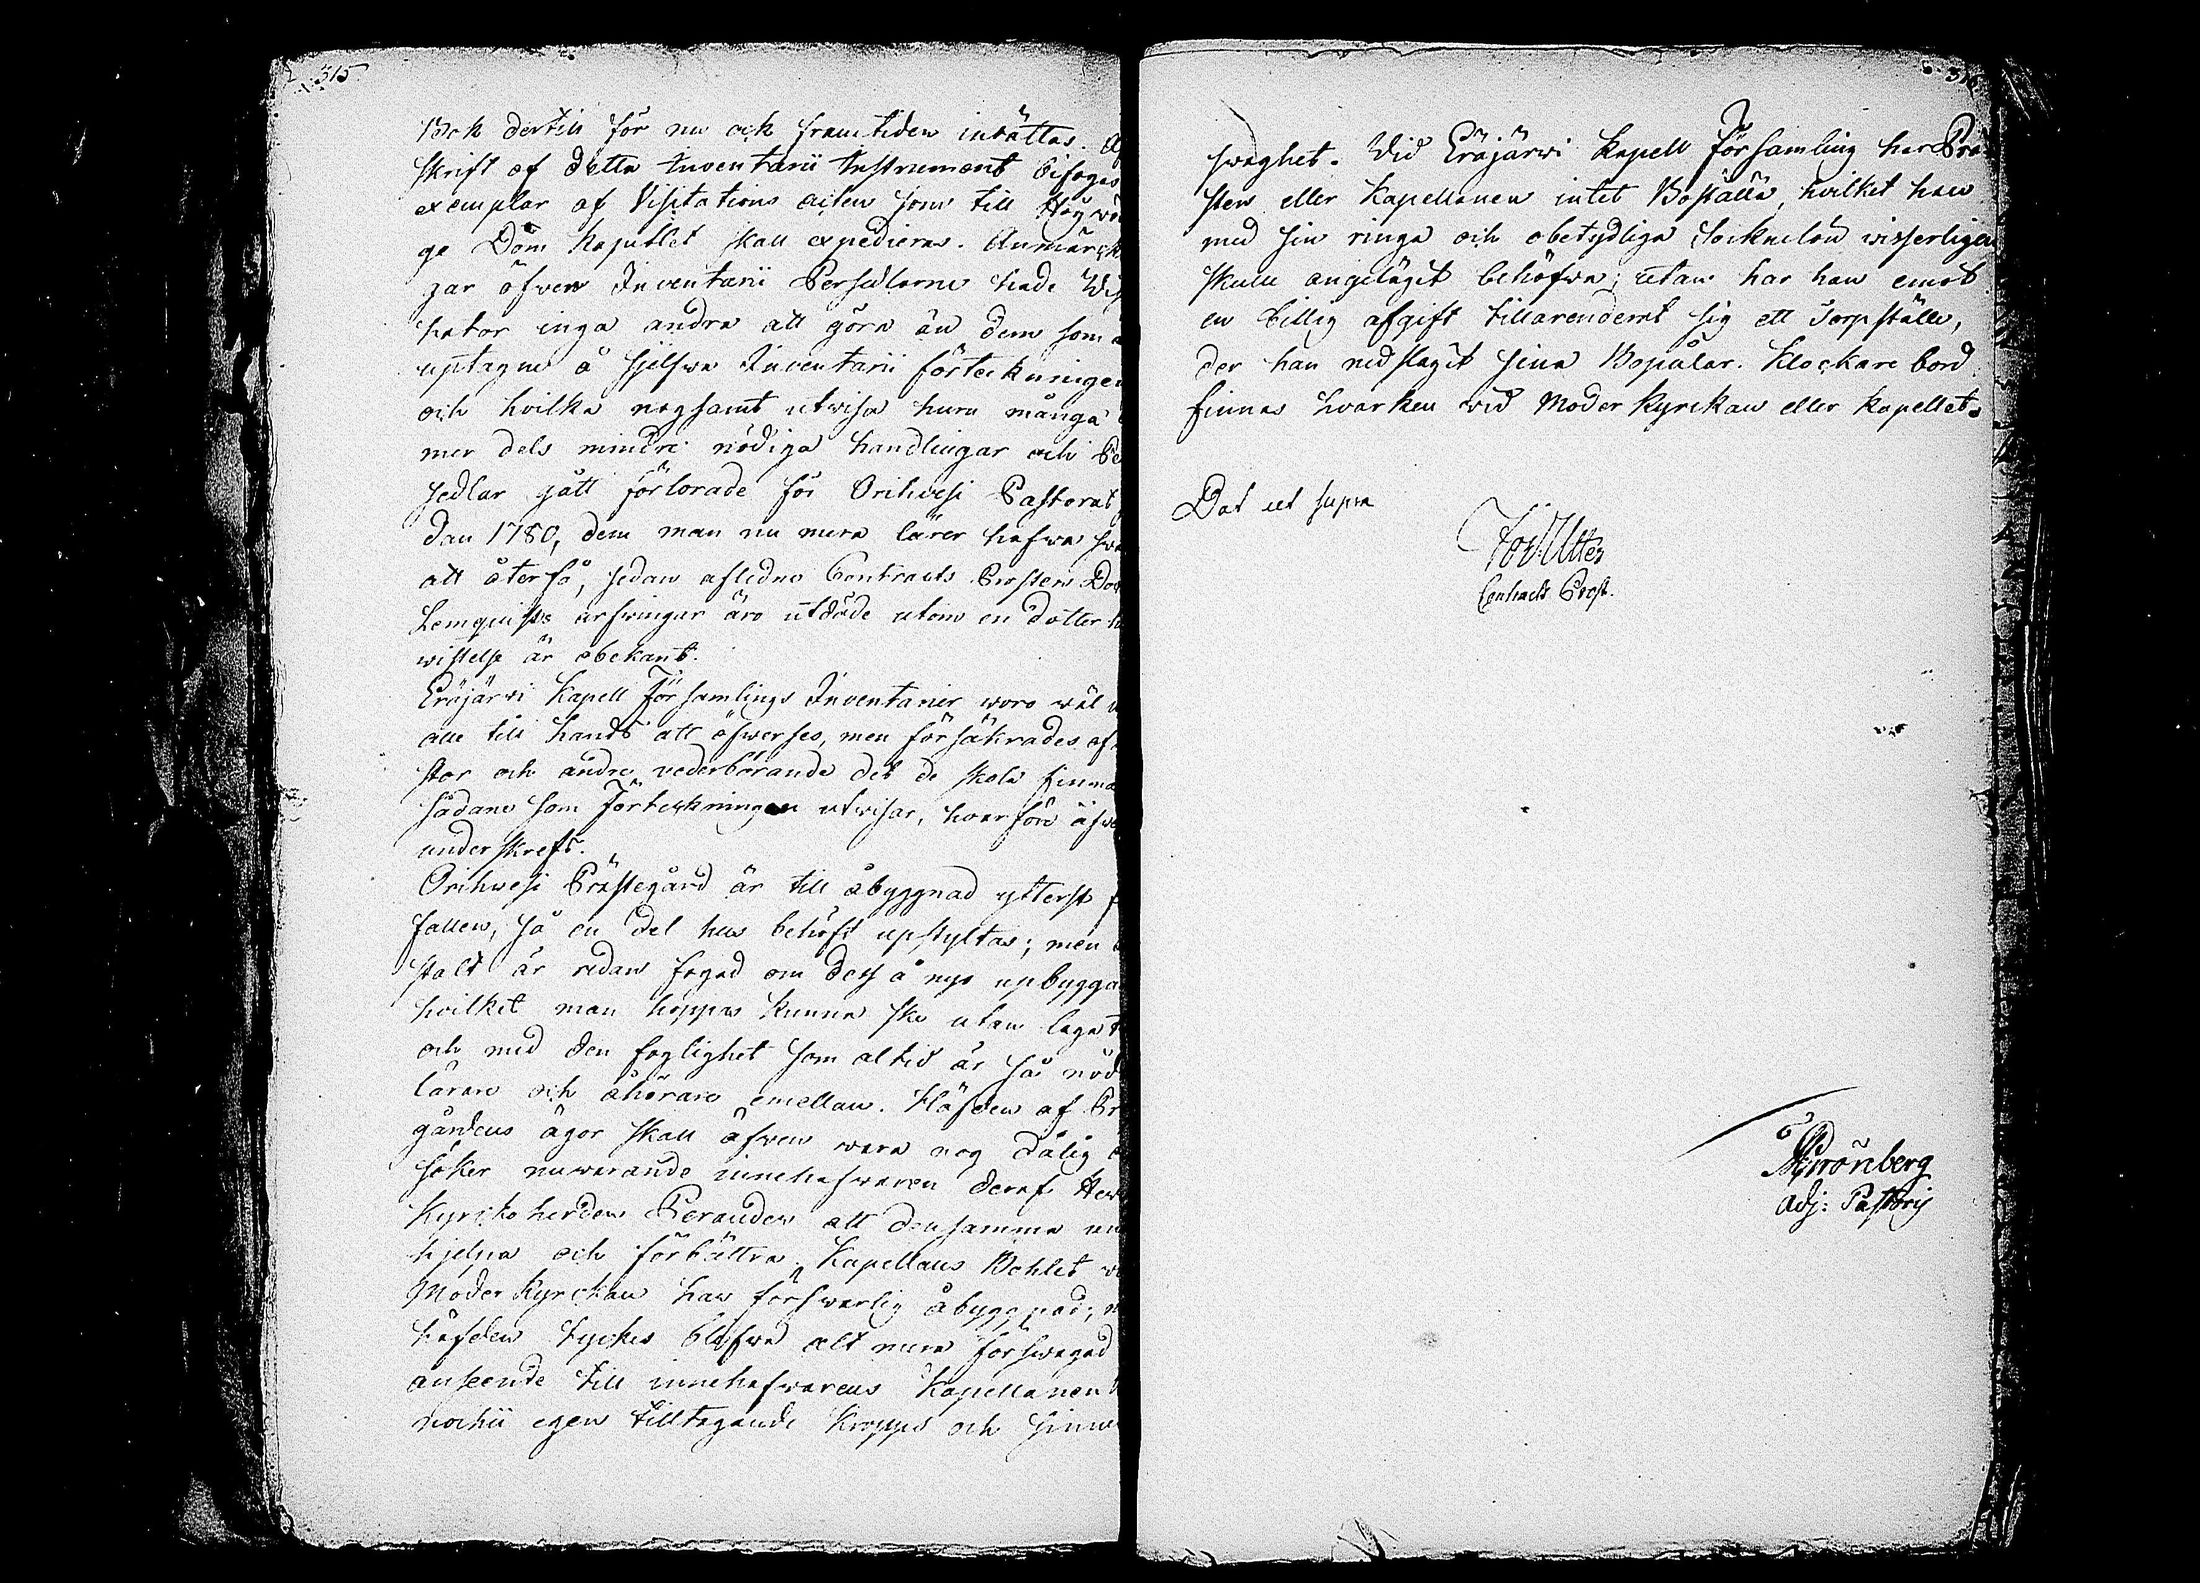 315
Bok dertill för nu och framtiden inrättas. Af
skrift af detta Inventarii Instrument bifogas
exemplar af Visitations acten som till Högvör
ge Dom Kapitlet skall expedieras. Anmärck
gar öfwer Inventarii Persedlarne hade Vis
tator inga andra att göra än dem som
uptagne å sjelfwa Inventarii förteckningen
och hvilka nogsamt utwisa huru många
mer dels mindre nödiga handlingar och Pe
sedlar gått förlorade för Orihvesi Pastorat
dan 1780, dem man nu mera lärer hafwa swå
att återfå, sedan afledne Contracts Prosten Doc
Lemquists arfwingar äro utdöde utom en dotter h
wistelse är obekant.
Eräjärwi Kapell Församlings Inventarier woro wäl
alle till hands att öfwerses, men försäkrades af
stor och andre vederbörande det de skola finna
sådane som Förteckningen utwisar, hvarföre äfwe
underskrefs.
Orihwesi Prästegård är till åbyggnad ytterst f
fallen, så en del hus behöft upstyltas; men
stalt är redan fogad om dess å nyo upbyggan
hvilket man hoppas kunna ske utan lagat
och med den foglighet som altid är så nöd
lärare och åhörare emellan. Häfden af Pr
gårdens ägor skall äfwen wara nog dålig
söker nuwarande innehafwaren deraf Herr
Kyrkoherden Perander att densamma
hjelpa och förbättra. Kapellans Bohlet w
Moder Kyrckan har förswarlig åbyggnad,
häfden tyckes blifwa alt mera förswagad
anseende till innehafwarens Kapellanen
egen tilltagande kropps och sinnes
swaghet. Vid Eräjärwi Kapell Församling har Prä
sten eller Kapellanen intet Boställe, hvilket han
med sin ringa och obetydliga Socknelön wisserligen
skulle angeläget behöfwa; utan har han emot
en billig afgift tillarenderat sig ett Torpställe,
der han nedslagit sina Bopålar. Klockare bord
finnas hvarken wid Moder kyrckan eller kapellet.
Dat ut supra
Contracts Prost.
Grönberg
Adj: Pastoris